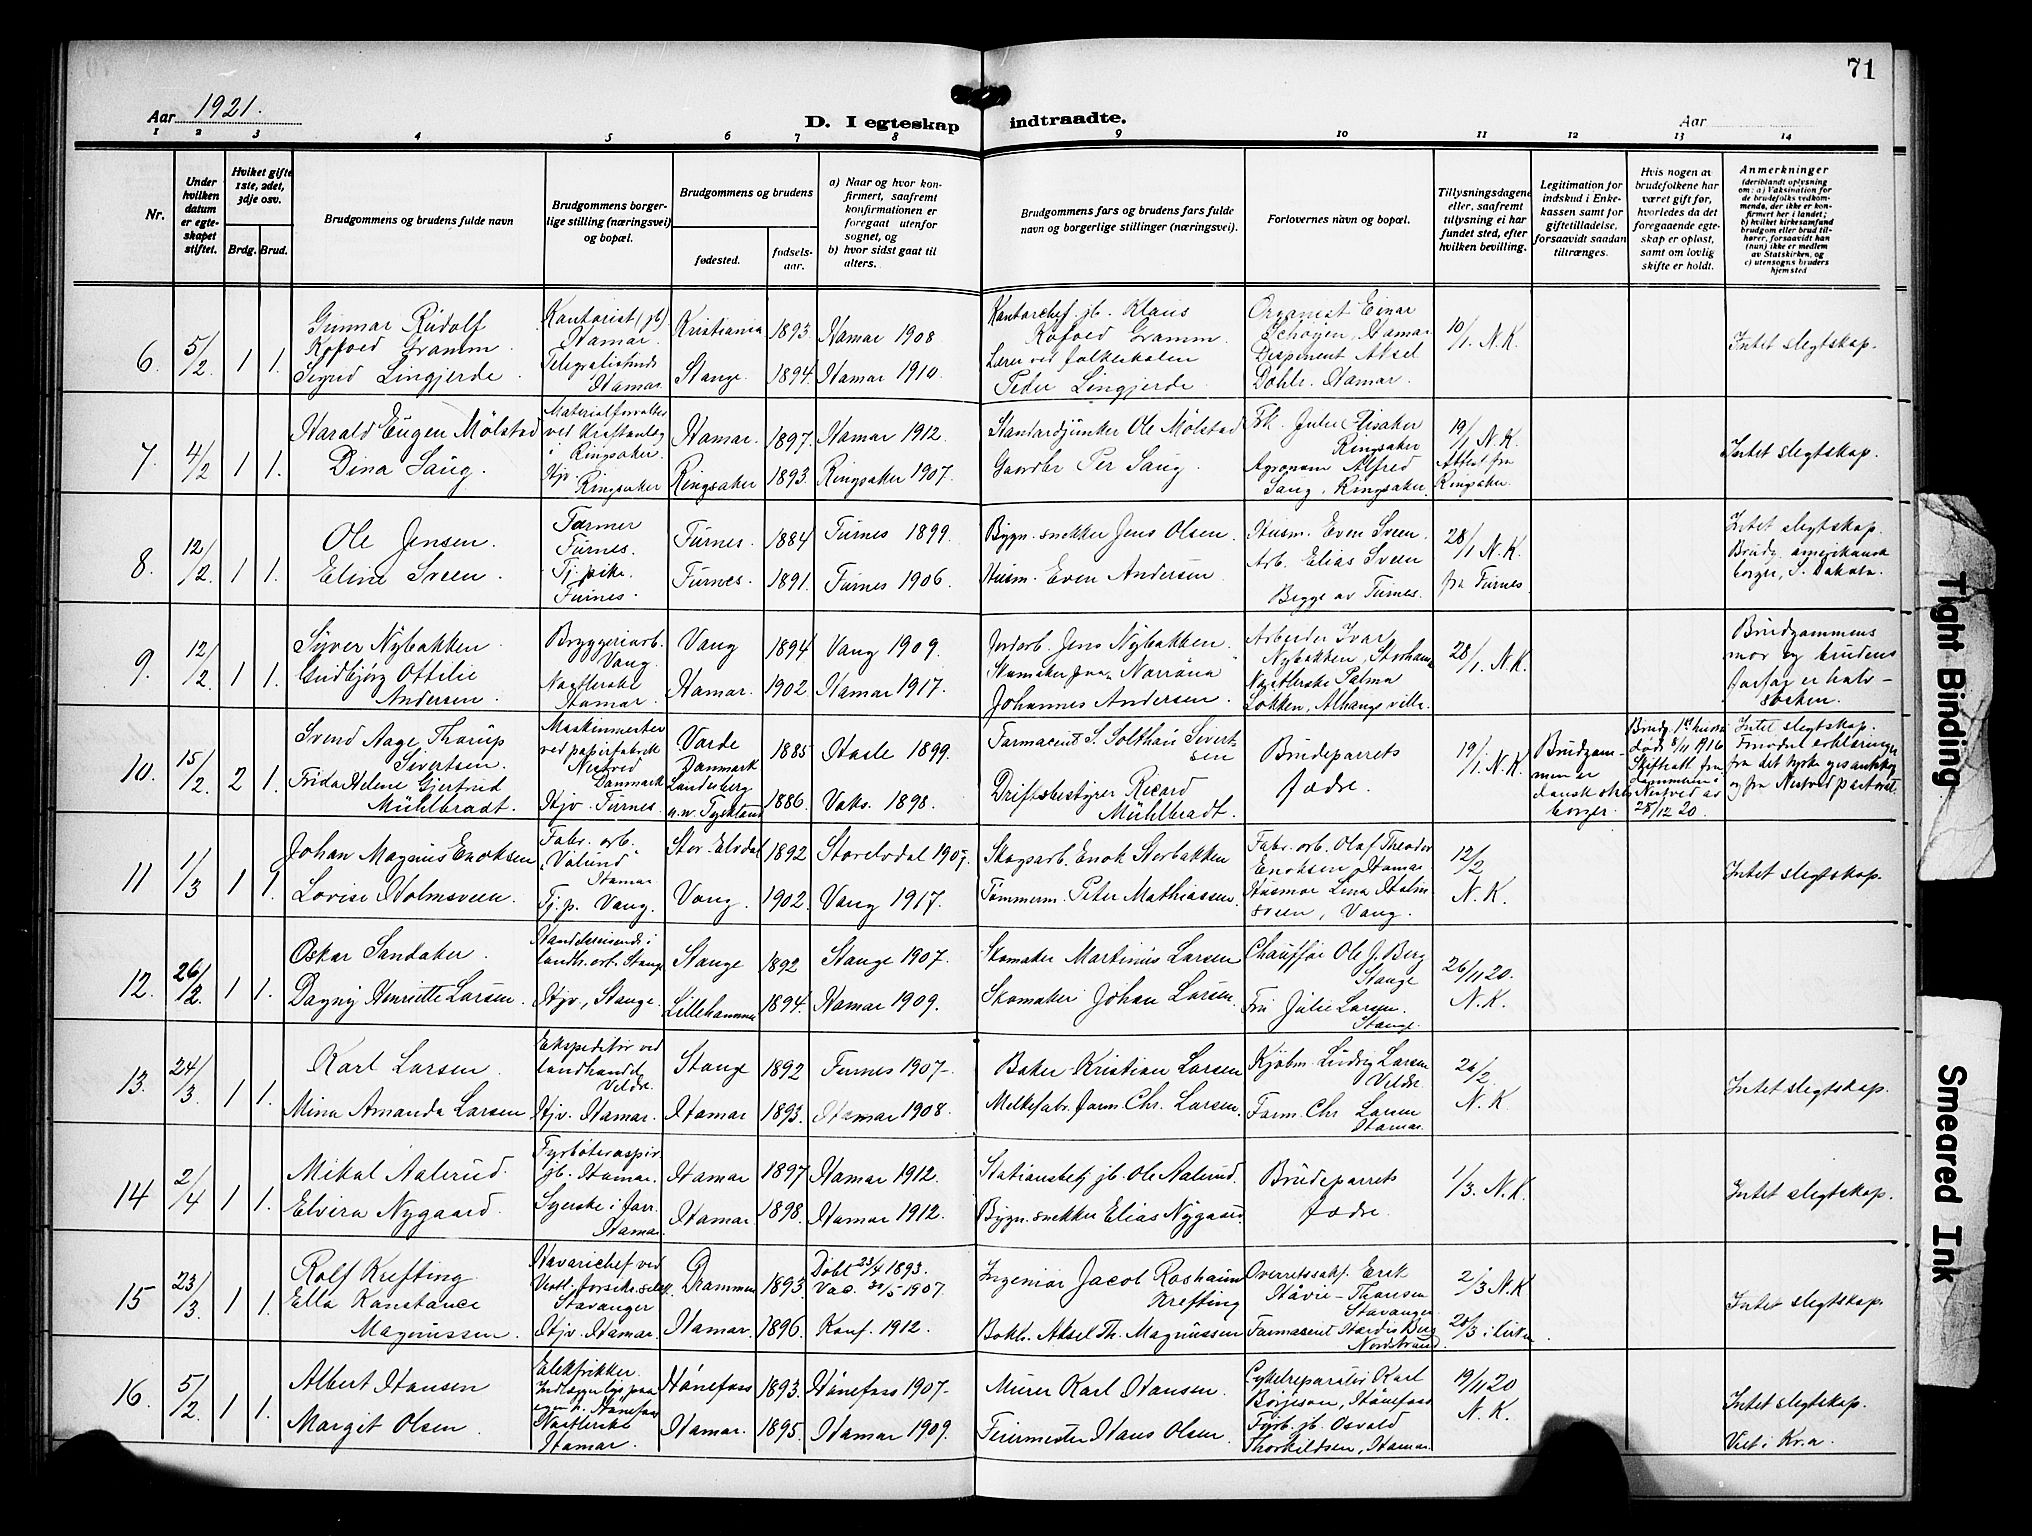 71
Aar 1921.
D. I egteskap indtraadte.
Aar
1 2 3 4 5 6 7 8 9 10 11 12 13 14
Nr.
Under hvilken datum er egteskapet stiftet.
Hvilket gifte 1ste, 2det, 3dje osv.
Brdg. Brud.
Brudgommens og brudens fulde navn
Brudgommens borgerlige stilling (næringsvei) og bopæl.
Brudgommens og brudens
fødested.
fødselsaar.
a) Naar og hvor konfirmert, saafremt konfirmationen er foregaat utenfor sognet, og
b) hvor sidst gaat til alters.
Brudgommens fars og brudens fars fulde navn og borgerlige stillinger (næringsvei).
Forlovernes navn og bopæl.
Tillysningsdagene eller, saafremt tillysning ei har fundet sted, efter hvilken bevilling.
Legitimation for indskud i Enkekassen samt for giftetilladelse, forsaavidt saadan tiltrænges.
Hvis nogen av brudefolkene har været gift før, hvorledes da det foregaaende egteskap er opløst, samt om lovlig skifte er holdt.
Anmerkninger (deriblandt oplysning om: a) Vaksination for de brudefolks vedkommende, der ikke er konfirmert her i landet; b) hvilket kirkesamfund brudgom eller brud tilhører, forsaavidt han (hun) ikke er medlem av Statskirken, og c) utensogns bruders hjemsted
6. 5/2 1 1. Gunnar Rudolf Kofoed Gramm Kontorist (jb) Hamar. Kristiania 1893 Hamar 1908 Kontorchef jb. Klaus Kofoed Gramm. Organist Einar Schøyen, Hamar 10/1. N.K. Intet slegtskap.
Sigrid Lingjerde. Hamar. Stange. 1894. Hamar 1910. Lærer ved folkeskolen Peder Lingjerde. Disponent Aksel Dohle. Hamar.
7. 4/2 1 1. Harald Eugen Mølstad Materialforvalter ved Kraftanlæg i Ringsaker. Hamar. 1897. Hamar 1912. Standardjunker Ole Mølstad Frk. Julie Flisaker Ringsaker 19/1 N.K. Attest fra Ringsaker. Intet slegtskap.
Dina Saug. Hjv. Ringsaker Ringsaker 1893. Ringsaker 1907. Gaardbr Per Saug. Agronom Alfred Saug, Ringsaker.
8. 12/2 1 1. Ole Jensen. Farmer Furnes. Furnes. 1884 Furnes 1899. Bygn. snekker Jens Olsen. Husm. Even Sveen. 28/1 N.K. fra Furnes. Intet slegtskap. Brudg. amerikansk borger, S. Dakota.
Eline Sveen. Tj. pike. Furnes. Furnes. 1891. Furnes 1906. Husm. Even Andersen Arb. Elias Sveen Begge av Furnes.
9. 12/2 1 1. Syver Nybakken. Bryggeriarb. Vang. Vang 1894 Vang 1909. Jordarb. Jens Nybakken. Arbeider Ivar Nybakken, Storham 28/1. N.K. Brudgommens mor og brudens farfar er halvsøsken.
Gudbjørg Ottilie Andersen. Hamar. Hamar. 1902. Hamar 1917. Johannes Andersen. Palma Løkken,
10. 15/2 2 1. Svend Aage Thorup Sivertsen. Maskinmester ved papirfabrik Nestved Danmark Varde Danmark 1885 Hasle 1899. Farmaceut S. Solthau Sivertsen Brudeparrets fædre. 19/1. N.K. Brudgommen er dansk statsborger. Brudg. 1st hustru død 8/11 1916 Nestved av 28/12 20. Intet slegtskap.
Frida Helene Gjertrud Mühlbradt. Hjv. Furnes. Landsberg a.w. Tyskland 1886. Vaks. 1898. Driftsbestyrer Ricard Mühlbradt.
11 1/3 1 1. Johan Magnus Enoksen Fabr. arb. "Vølund" Hamar Stor-Elvdal 1892 Storelvdal 1907. Skogsarb. Enok Storbakken Fabr. arb. Olaf Theodor Enoksen, Hamar 12/2 N.K. Intet slegtskap.
Lovise Holmsveen. Tj. p. Vang. Vang. 1902. Vang 1917. Tømmerm. Peter Mathiassen. Husmor Lina Holmsveen, Vang.
12. 26/2. 1 1. Oskar Sandaker. Handelsreisende i Stange Stange 1892 Stange 1907. Skomaker Martinus Larsen Chauffør Ole J. Berg Stange 26/11 20. N.K.
Dagny Henriette Larsen. Hjv., Stange. Lillehammer 1894. Hamar 1909. Skomaker Johan Larsen. Fru Julie Larsen. Stange.
13. 24/3. 1 1. Karl Larsen. Ekspeditør ved landhandel, Veldre. Stange 1892 Furnes 1907. Baker Kristian Larsen Kjøbm. Ludvig Larsen Veldre 26/2. N.K Intet slegtskap.
Mina Amanda Larsen Hjv. Hamar. Hamar 1893. Hamar 1908. Melkefabr. form. Chr. Larsen. Form. Chr Larsen Hamar.
14 2/4 1 1. Mikal Aalerud. Fyrbøteraspir. jb. Hamar. Hamar 1897 Hamar 1912. Stationsbetj jb. Ole Aalerud. Brudeparrets fædre. 1/3. N.K. Intet slegtskap.
Elvira Nygaard. Syerske i forr. Hamar Hamar. 1898. Hamar 1912. Bygn. snekker Elias Nygaard.
15 23/3. 1 1. Rolf Krefting. Havarichef ved Stavanger Drammen 1893 Døbt 23/4 1893. Vac. 30/5 1907. Ingeniør Jacob Roshauw Krefting Overretssakf. Erik Håvie-Thoresen Stavanger. 2/3 N.K Intet slegtskap.
Ella Konstance Magnussen. Hjv. Hamar. Hamar. 1896. Konf. 1912. Bokh. Aksel Th. Magnussen Farmaceut Hardis Berg Nordstrand. 20/3 i kirken.
16. 5/2. 1 1. Albert Hansen Elektrikker. Hønefoss Hønefoss 1893. Hønefoss 1907. Murer Karl Hansen. Cykelreparatør Karl Børjeson, Hønefoss 19/11 20 N.K. Intet slegtskap. Viet i Kr.a.
Margit Olsen. Hamar. Hamar. 1895. Hamar 1909. Feiermester Hans Olsen. Fyrb. jb. Osvald Thorkildsen, Hamar.
Tight Binding
Smeared Ink